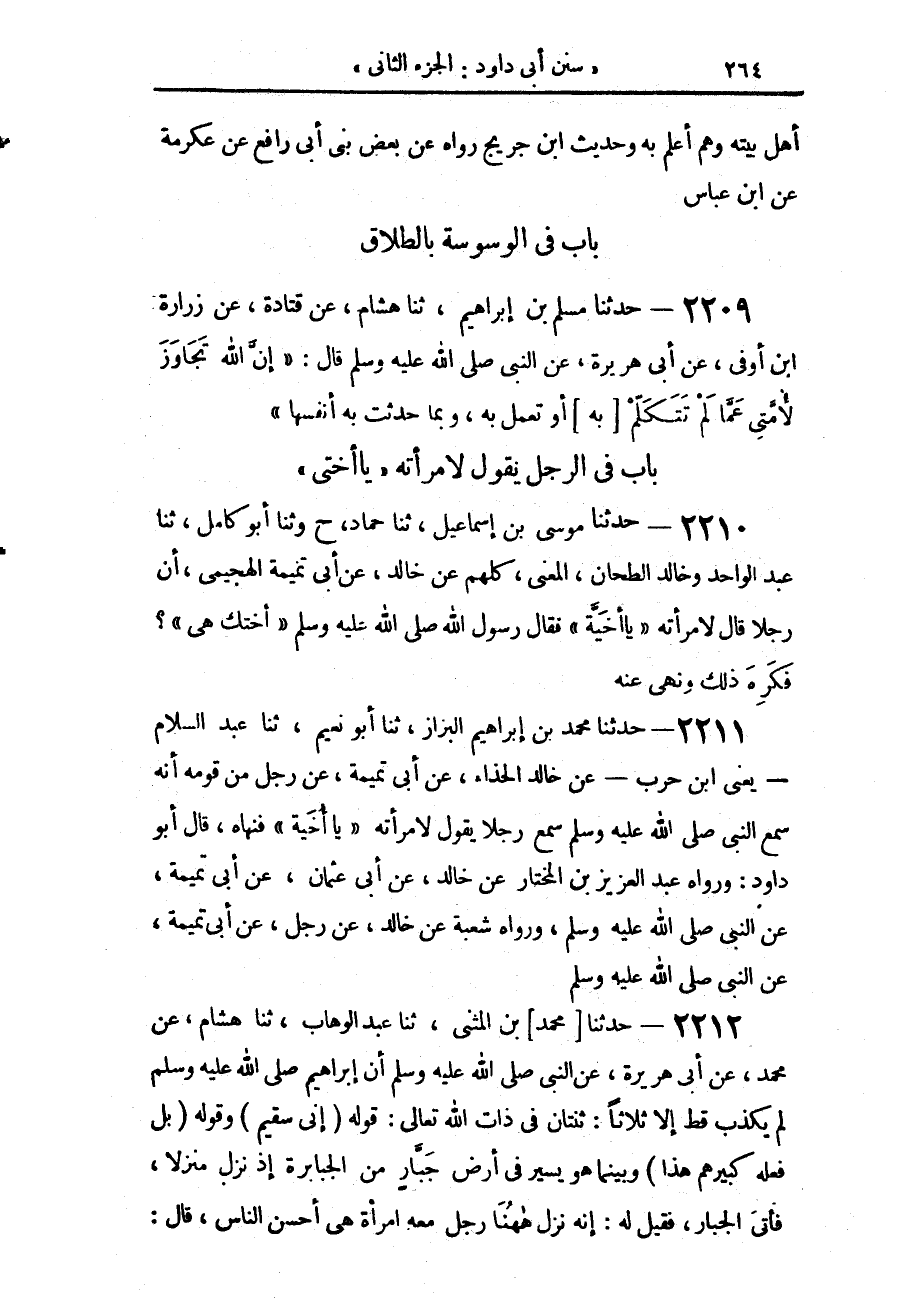 ٢٦٤ « سنن أبى داود : الجزء الثانى »
أهل بيته وهم أعلم به وحديث ابن جريج رواه عن بعض بنى أبى رافع عن عكرمة
عن ابن عباس
باب فى الوسوسة بالطلاق
٢٢٠٩ — حدثنا مسلم بن إبراهيم ، ثنا هشام ، عن قتادة ، عن زرارة
ابن أوفى ، عن أبى هريرة ، عن النبى صلى الله عليه وسلم قال : « إنَّ الله تَجَاوَزَ
لأُمَّتِي عَمَّا لَمْ تَتَكَلَّمْ [ به ] أو تعمل به ، وبما حدثت به أنفسها »
باب فى الرجل يقول لامرأته « يا أختى »
٢٢١٠ — حدثنا موسى بن إسماعيل ، ثنا حماد، ح وثنا أبو كامل ، ثنا
عبد الواحد وخالد الطحان ، المعنى ، كلهم عن خالد ، عن أبى تميمة الهجيمى ، أن
رجلا قال لامرأته « يا أخَيَّة » فقال رسول الله صلى الله عليه وسلم « أختك هى » ؟
فَكَرِهَ ذلك ونهى عنه
٢٢١١ — حدثنا محمد بن إبراهيم البزاز ، ثنا أبو نعيم ، ثنا عبد السلام
— يعنى ابن حرب — عن خالد الحذاء ، عن أبى تميمة ، عن رجل من قومه أنه
سمع النبى صلى الله عليه وسلم سمع رجلا يقول لامرأته « يا أُخَية » فنهاه ، قال أبو
داود : ورواه عبد العزيز بن المختار عن خالد ، عن أبى عثمان ، عن أبى تميمة ،
عن النبى صلى الله عليه وسلم ، ورواه شعبة عن خالد ، عن رجل ، عن أبى تميمة ،
عن النبى صلى الله عليه وسلم
٢٢١٢ — حدثنا [ محمد ] بن المثنى ، ثنا عبد الوهاب ، ثنا هشام ، عن
محمد ، عن أبى هريرة ، عن النبى صلى الله عليه وسلم أن إبراهيم صلى الله عليه وسلم
لم يكذب قط إلا ثلاثاً : ثنتان فى ذات الله تعالى : قوله ( إنى سقيم ) وقوله ( بل
فعله كبيرهم هذا ) وبينما هو يسير فى أرض جَبَّارٍ من الجبابرة إذ نزل منزلا ،
فأتىَ الجبار ، فقيل له : إنه نزل هٰهُنَا رجل معه امرأة هى أحسن الناس ، قال :